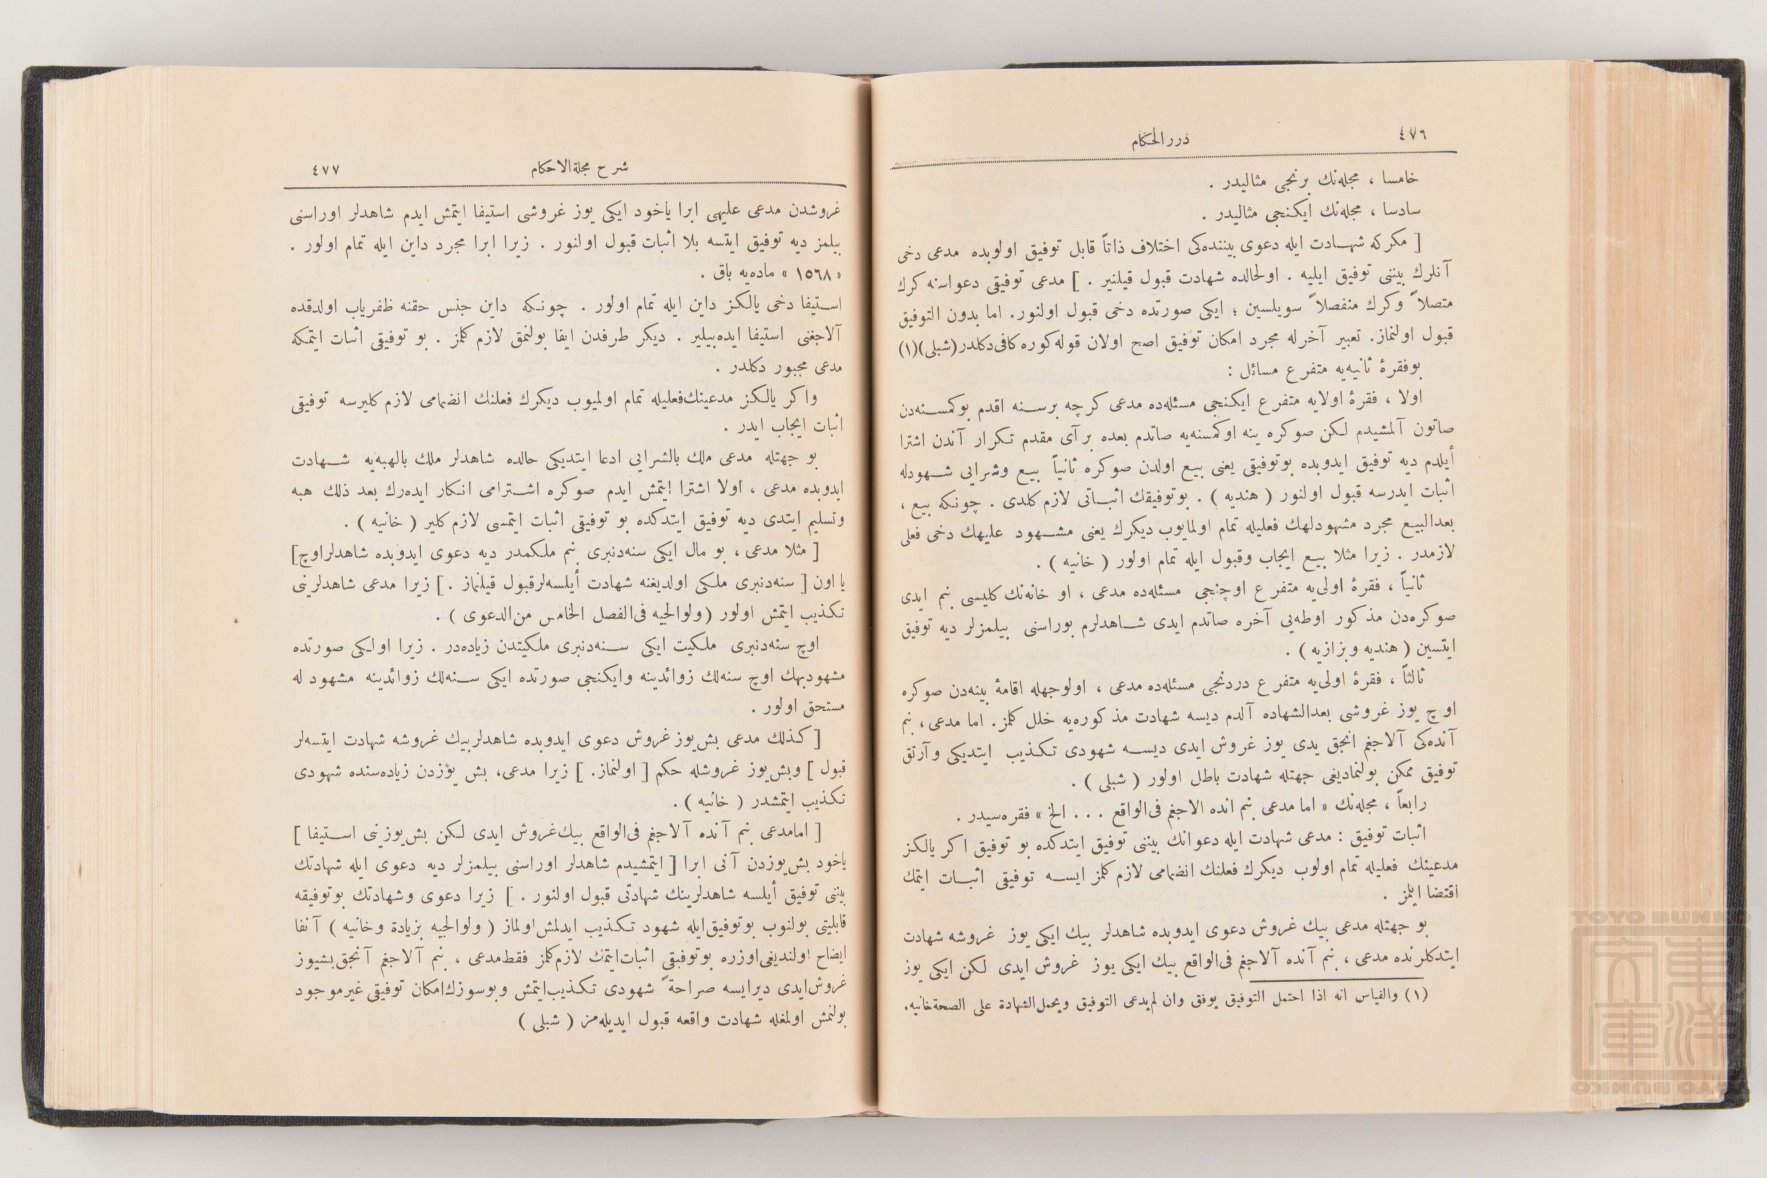 ٤٧٦
دررالحكام
خامسا ، مجله‌نك برنجى مثاليدر .
سادسا ، مجله‌نك ايكنجى مثاليدر .
[ مكركه شهادت ايله دعوى بيننده‌كى اختلاف ذاتاً قابل توفيق اولوبده مدعى دخى
آنلرك بينى توفيق ايليه . اولحالده شهادت قبول قيلنير . ] مدعى توفيقى دعواسنه كرك
متصلاً وكرك منفصلاً سويلسين ؛ ايكى صورتده دخى قبول اولنور. اما بدون التوفيق
قبول اولنماز. تعبير آخرله مجرد امكان توفيق اصح اولان قوله‌كوره‌كافى‌دكلدر(شبلى)(١)
بوفقرۀ ثانيه‌يه متفرع مسائل :
اولا ، فقرۀ اولايه متفرع ايكنجى مسئله‌ده مدعى كرچه برسنه اقدم بوكمسنه‌دن
صاتون آلمشيدم لكن صوكره ينه اوكمسنه‌يه صاتدم بعده برآى مقدم تكرار آندن اشترا
أيلدم ديه توفيق ايدوبده بوتوفيقى يعنى بيع اولدن صوكره ثانياً بيع وشرايى شهودله
اثبات ايدرسه قبول اولنور ( هنديه ) . بوتوفيقك اثباتى لازم كلدى . چونكه بيع ،
بعدالبيع مجرد مشهودلهك فعليله تمام اولمايوب ديكرك يعنى مشهود عليهك دخى فعلى
لازمدر . زيرا مثلا بيع ايجاب وقبول ايله تمام اولور ( خانيه ) .
ثانياً ، فقرۀ اولى‌يه متفرع اوچنجى مسئله‌ده مدعى ، او خانه‌نك كليسى بنم ايدى
صوكره‌دن مذكور اوطه‌يى آخره صاتدم ايدى شاهدلرم بوراسنى بيلمزلر ديه توفيق
ايتسين ( هنديه وبزازيه ) .
ثالثاً ، فقرۀ اولى‌يه متفرع دردنجى مسئله‌ده مدعى ، اولوجهله اقامۀ بينه‌دن صوكره
اوچ يوز غروشى بعدالشهاده آلدم ديسه شهادت مذكوره‌يه خلل كلمز. اما مدعى ، بنم
آنده‌كى آلاجغم انجق يدى يوز غروش ايدى ديسه شهودى تكذيب ايتديكى وآرتق
توفيق ممكن بولنماديغى جهتله شهادت باطل اولور ( شبلى ) .
رابعاً ، مجله‌نك « اما مدعى بنم انده الاجغم فى‌الواقع . . . الخ » فقره‌سيدر .
اثبات توفيق : مدعى شهادت ايله دعوانك بينى توفيق ايتدكده بو توفيق اكر يالكز
مدعينك فعليله تمام اولوب ديكرك فعلنك انضمامى لازم كلمز ايسه توفيقى اثبات ايتمك
اقتضا ايلمز .
بو جهتله مدعى بيك غروش دعوى ايدوبده شاهدلر بيك ايكى يوز غروشه شهادت
ايتدكلرنده مدعى ، بنم آنده آلاجغم فى‌الواقع بيك ايكى يوز غروش ايدى لكن ايكى يوز
(١) والقياس انه اذا احتمل التوفيق يوفق وان لم‌يدعى التوفيق ويحمل‌الشهادة على الصحة‌خانيه.
شرح مجلة‌الاحكام
٤٧٧
غروشدن مدعى عليهى ابرا ياخود ايكى يوز غروشى استيفا ايتمش ايدم شاهدلر اوراسنى
بيلمز ديه توفيق ايتسه بلا اثبات قبول اولنور . زيرا ابرا مجرد داين ايله تمام اولور .
« ١٥٦٨ » ماده‌يه باق .
استيفا دخى يالكز داين ايله تمام اولور . چونكه داين جنس حقنه ظفرياب اولدقده
آلاجغنى استيفا ايده‌بيلير . ديكر طرفدن ايفا بولنمق لازم كلمز . بو توفيقى اثبات ايتمكه
مدعى مجبور دكلدر .
واكر يالكز مدعينك‌فعليله تمام اولميوب ديكرك فعلنك انضمامى لازم كليرسه توفيقى
اثبات ايجاب ايدر .
بو جهتله مدعى ملك بالشرايى ادعا ايتديكى حالده شاهدلر ملك بالهبه‌يه شهادت
ايدوبده مدعى ، اولا اشترا ايتمش ايدم صوكره اشترامى انكار ايده‌رك بعد ذلك هبه
وتسليم ايتدى ديه توفيق ايتدكده بو توفيقى اثبات ايتمسى لازم كلير ( خانيه ) .
[ مثلا مدعى ، بو مال ايكى سنه‌دنبرى بنم ملكمدر ديه دعوى ايدوبده شاهدلراوچ]
يا اون [ سنه‌دنبرى ملكى اولديغنه شهادت أيلسه‌لرقبول قيلنماز .] زيرا مدعى شاهدلرينى
تكذيب ايتمش اولور (ولوالجيه فى‌الفصل الخامس من‌الدعوى ) .
اوچ سنه‌دنبرى ملكيت ايكى سنه‌دنبرى ملكيتدن زياده‌در . زيرا اولكى صورتده
مشهودبهك اوچ سنه‌لك زوائدينه وايكنجى صورتده ايكى سنه‌لك زوائدينه مشهود له
مستحق اولور .
[ كذلك مدعى بش‌يوز غروش دعوى ايدوبده شاهدلربيك غروشه شهادت ايتسه‌لر
قبول ] وبش‌يوز غروشله حكم [ اولنماز. ] زيرا مدعى، بش يوزدن زياده‌سنده شهودى
تكذيب ايتمشدر ( خانيه ) .
[ امامدعى بنم آنده آلاجغم فى‌الواقع بيك‌غروش ايدى لكن بش‌يوزينى استيفا ]
ياخود بش‌يوزدن آنى ابرا [ ايتمشيدم شاهدلر اوراسنى بيلمزلر ديه دعوى ايله شهادتك
بينى توفيق أيلسه شاهدلرينك شهادتى قبول اولنور . ] زيرا دعوى وشهادتك بوتوفيقه
قابليتى بولنوب بوتوفيق‌ايله شهود تكذيب ايدلمش‌اولماز ( ولوالجيه بزيادة وخانيه ) آنفا
ايضاح اولنديغى‌اوزره بوتوفيقى اثبات‌ايتمك لازم‌كلمز فقط‌مدعى ، بنم آلاجغم آنجق‌بشيوز
غروش‌ايدى ديرايسه صراحةً شهودى تكذيب‌ايتمش وبوسوزك‌امكان توفيقى غيرموجود
بولنمش اولمغله شهادت واقعه قبول ايديله‌مز ( شبلى )
TOYO BUNKO
東洋文庫
TOYO BUNKO